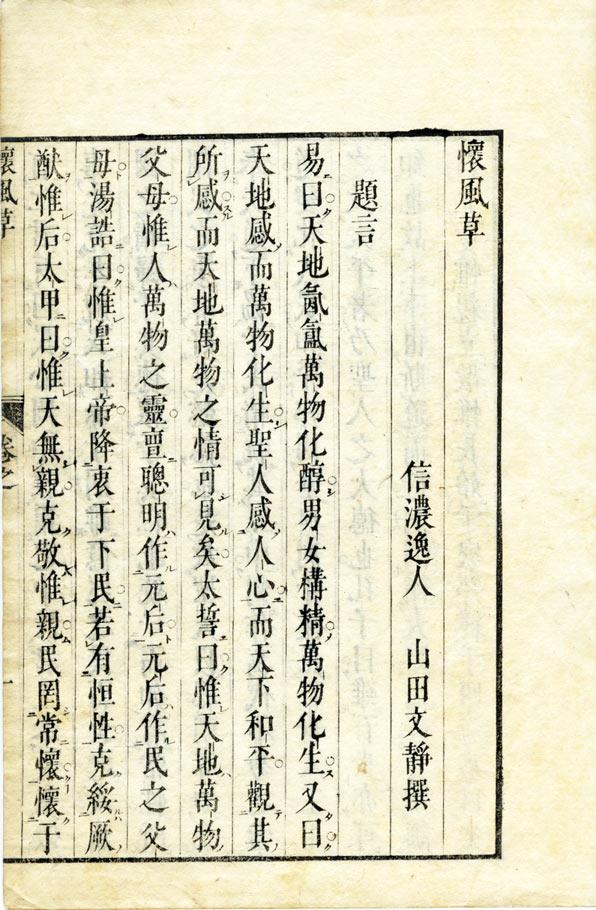 懷風草
信濃逸人 山田文靜撰
題言
易曰天地氤氳萬物化醇男女構精萬物化生又曰
天地感而萬物化生聖人感人心而天下和平觀其
所感而天地萬物之情可見矣太誓曰惟天地萬物
父母惟人萬物之靈亶聰明作元后元后作民之父
母湯誥曰惟皇上帝降衷于下民若有恒性克綏厥
猷惟后太甲曰惟天無親克敬惟親民罔常懷懷于
懷風草 卷之 一